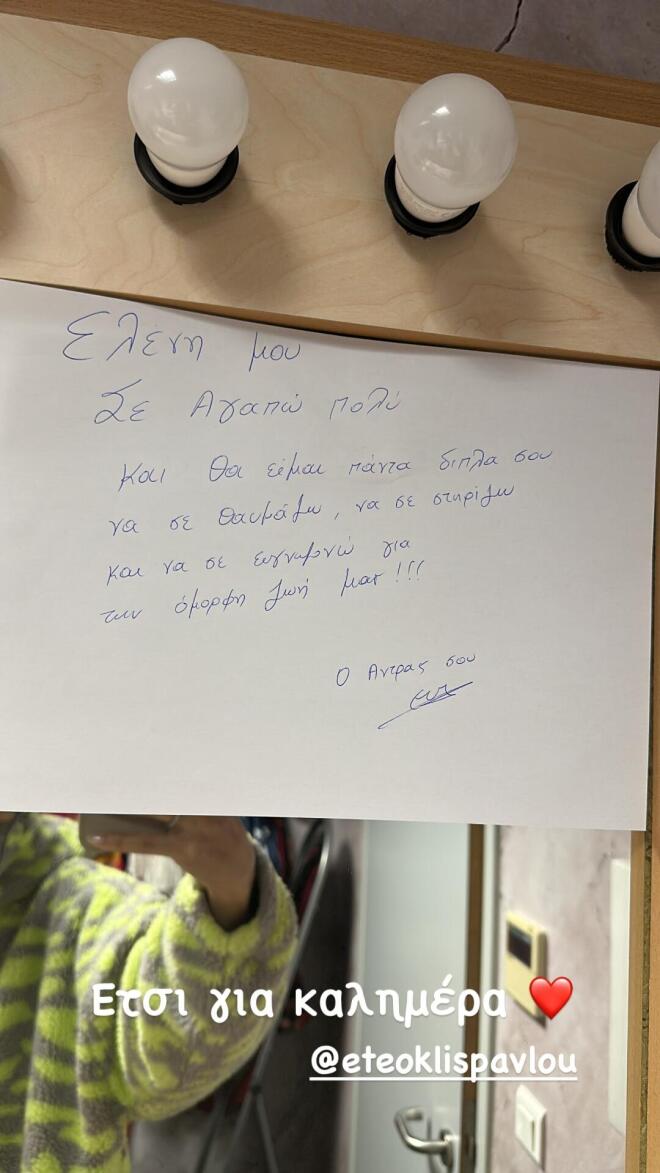 Ελένη μου
Σε Αγαπώ πολύ
και θα είμαι πάντα δίπλα σου
να σε θαυμάζω, να σε στηρίζω
και να σε ευγνωμονώ για
την όμορφη ζωή μας!!!
Ο Αντρας σου
Ετσι για καλημέρα ❤️
@eteoklispavlou